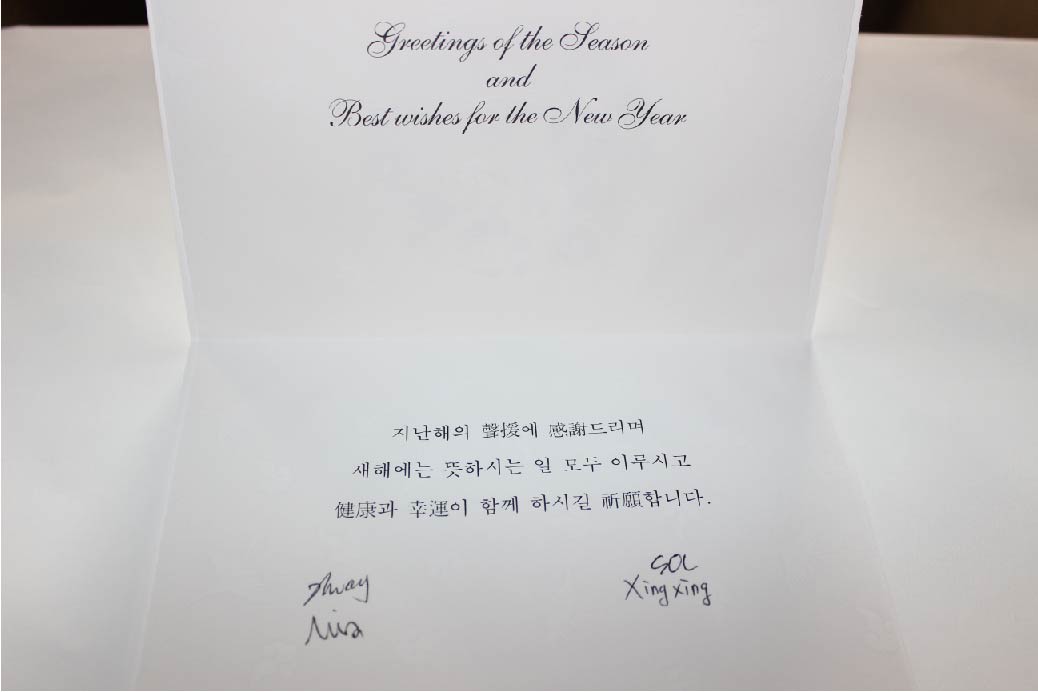 Greetings of the Season
and
Best wishes for the New Year
지난해의 聲援에 感謝드리며
새해에는 뜻하시는 일 모두 이루시고
健康과 幸運이 함께 하시길 祈願합니다.
SOL
Xingxing